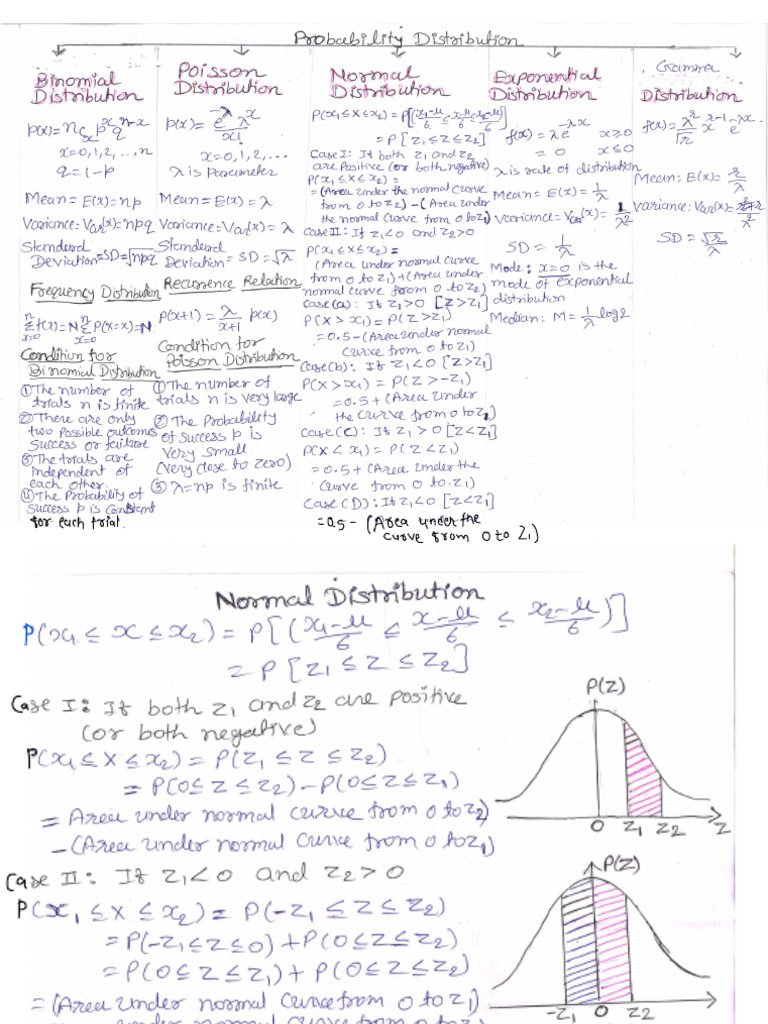 Probability Distribution
Binomial
Distribution
p(x) = nCx p^x q^n-x
x=0,1,2,...,n
q=1-p
Mean=E(x)=np
Variance=Var(x)=npq
Standard
Deviation=SD=√npq
Frequency Distribution
n∑x=0 f(x)=N n∑x=0 P(X=x)=N
Condition for
Binomial Distribution
① The number of
trials n is finite
② There are only
two possible outcomes
success or failure
③ The trials are
independent of
each other.
④ The Probability of
success p is constant
for each trial.
Poisson
Distribution
p(x) = e^-λ λ^x / x!
x=0,1,2,...
λ is Parameter
Mean=E(x)=λ
Variance=Var(x)=λ
Standard
Deviation = SD=√λ
Recurrence Relation
P(x+1) = λ/x+1 p(x)
Condition for
Poisson Distribution
① The number of
trials n is very large
② The Probability
of success p is
very small
(very close to zero)
③ λ=np is finite
Normal
Distribution
P(x1≤X≤x2) = P[(x1-μ/σ ≤ x-μ/σ ≤ x2-μ/σ)]
= P[z1≤Z≤z2]
Case I: If both z1 and z2
are Positive (or both negative)
P(x1≤X≤x2)=
=(Area under the normal curve
from 0 to z2) - (Area under
the normal curve from 0 to z1)
Case II: If z1<0 and z2>0
P(x1≤X≤x2)=
(Area under normal curve
from 0 to z1)+(Area under
normal curve from 0 to z2)
Case(a): If z1>0 [Z>z1]
P(X>x1) = P(Z>z1)
=0.5-(Area under normal
curve from 0 to z1)
Case(b): If z1<0 [Z>z1]
P(X>x1) = P(Z>-z1)
=0.5+(Area under
the curve from 0 to z1)
Case(C): If z1>0 [Z<z1]
P(X<x1) = P(Z<z1)
=0.5+(Area under the
curve from 0 to z1)
Case(D): If z1<0 [Z<z1]
=0.5-(Area under the
curve from 0 to z1)
Exponential
Distribution
f(x) = λe^-λx x≥0
= 0 x≤0
λ is rate of distribution
Mean=E(x)=1/λ
Variance=Var(x)=1/λ²
SD = 1/λ
Mode: x=0 is the
mode of exponential
distribution
Median: M=1/λ log2
Gramma
Distribution
f(x)=λ^r/√r x^r-1 e^-λx
Mean: E(x)=r/λ
Variance: Var(x)=r/λ²
SD = √r/λ
Normal Distribution
P(x1 ≤ x ≤ x2) = P[(x1-μ/σ ≤ x-μ/σ ≤ x2-μ/σ)]
= P[z1 ≤ Z ≤ z2]
Case I: If both z1 and z2 are positive
(or both negative)
P(x1 ≤ X ≤ x2) = P(z1 ≤ Z ≤ z2)
= P(0≤Z≤z2) - P(0≤Z≤z1)
= Area under normal curve from 0 to z2)
- (Area under normal curve from 0 to z1)
P(Z)
0 z1 z2 Z
Case II: If z1<0 and z2>0
P(x1 ≤ X ≤ x2) = P(-z1 ≤ Z ≤ z2)
= P(-z1≤Z≤0) + P(0≤Z≤z2)
= P(0≤Z≤z1) + P(0≤Z≤z2)
= (Area under normal curve from 0 to z1)
P(Z)
-z1 0 z2